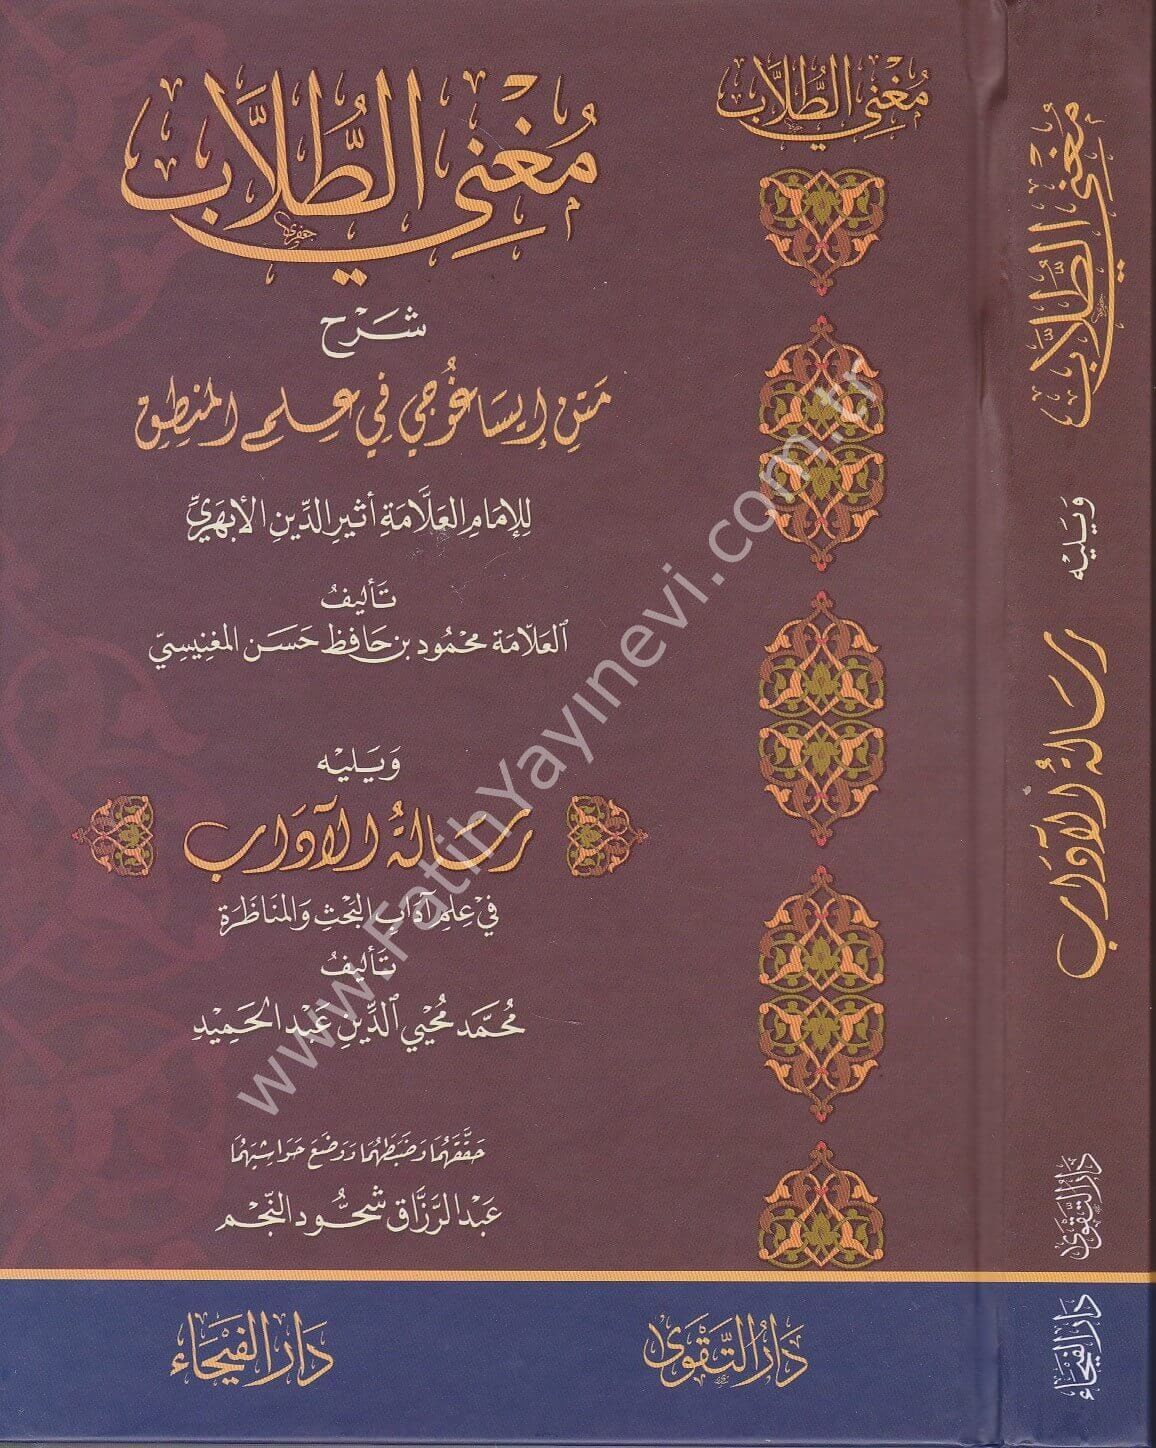 مُغْنِي الطُّلَّاب
جعفري
شَرْح
مَتْنِ إِيسَاغُوجِي فِي عِلْمِ المَنطِقِ
لِلإمَامِ العَلَّامَةِ أثيرِ الدِّينِ الأبهَرِيِّ
تَأليفُ
العَلّامَة محْمُود بن حَافِظ حَسَن المَغنِيسِيّ
وَيَليْه
رِسَالةُ الآدَاب
في عِلمِ آدَابِ البَحْثِ وَالمنَاظَرَة
تَأليفُ
مُحَمَّد مُحْيِي الدِّينِ عَبْد الحَمِيْدِ
حَقَّقَهُمَا وَضَبَطَهُمَا وَوَضَعَ حَوَاشِيَهُمَا
عَبْد الرَّزَّاق شحُّود النَّجْم
دَارُ الفَيْحَاء
دَارُ التَّقْوَى
مُغْنِي الطُّلَّاب
مُغْنِي الطُّلَّاب
وَيَليْه
رِسَالةُ الآدَاب
دَارُ التَّقْوَى
دَارُ الفَيْحَاء
www.FatihYayinevi.com.tr